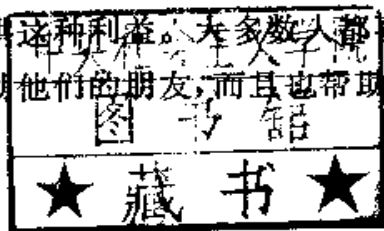 这种利益。大多数人都
他们的朋友,而且也帮助
图书馆
★ 藏书 ★